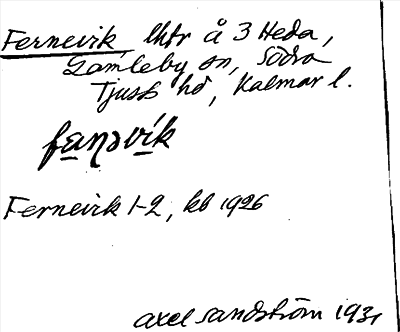 Fernevik lhtr å 3 Heda,
Gamleby sn, Södra
Tjust hd, Kalmar l.
Fernevik 1-2, kb 1926
Axel Sandström 1931